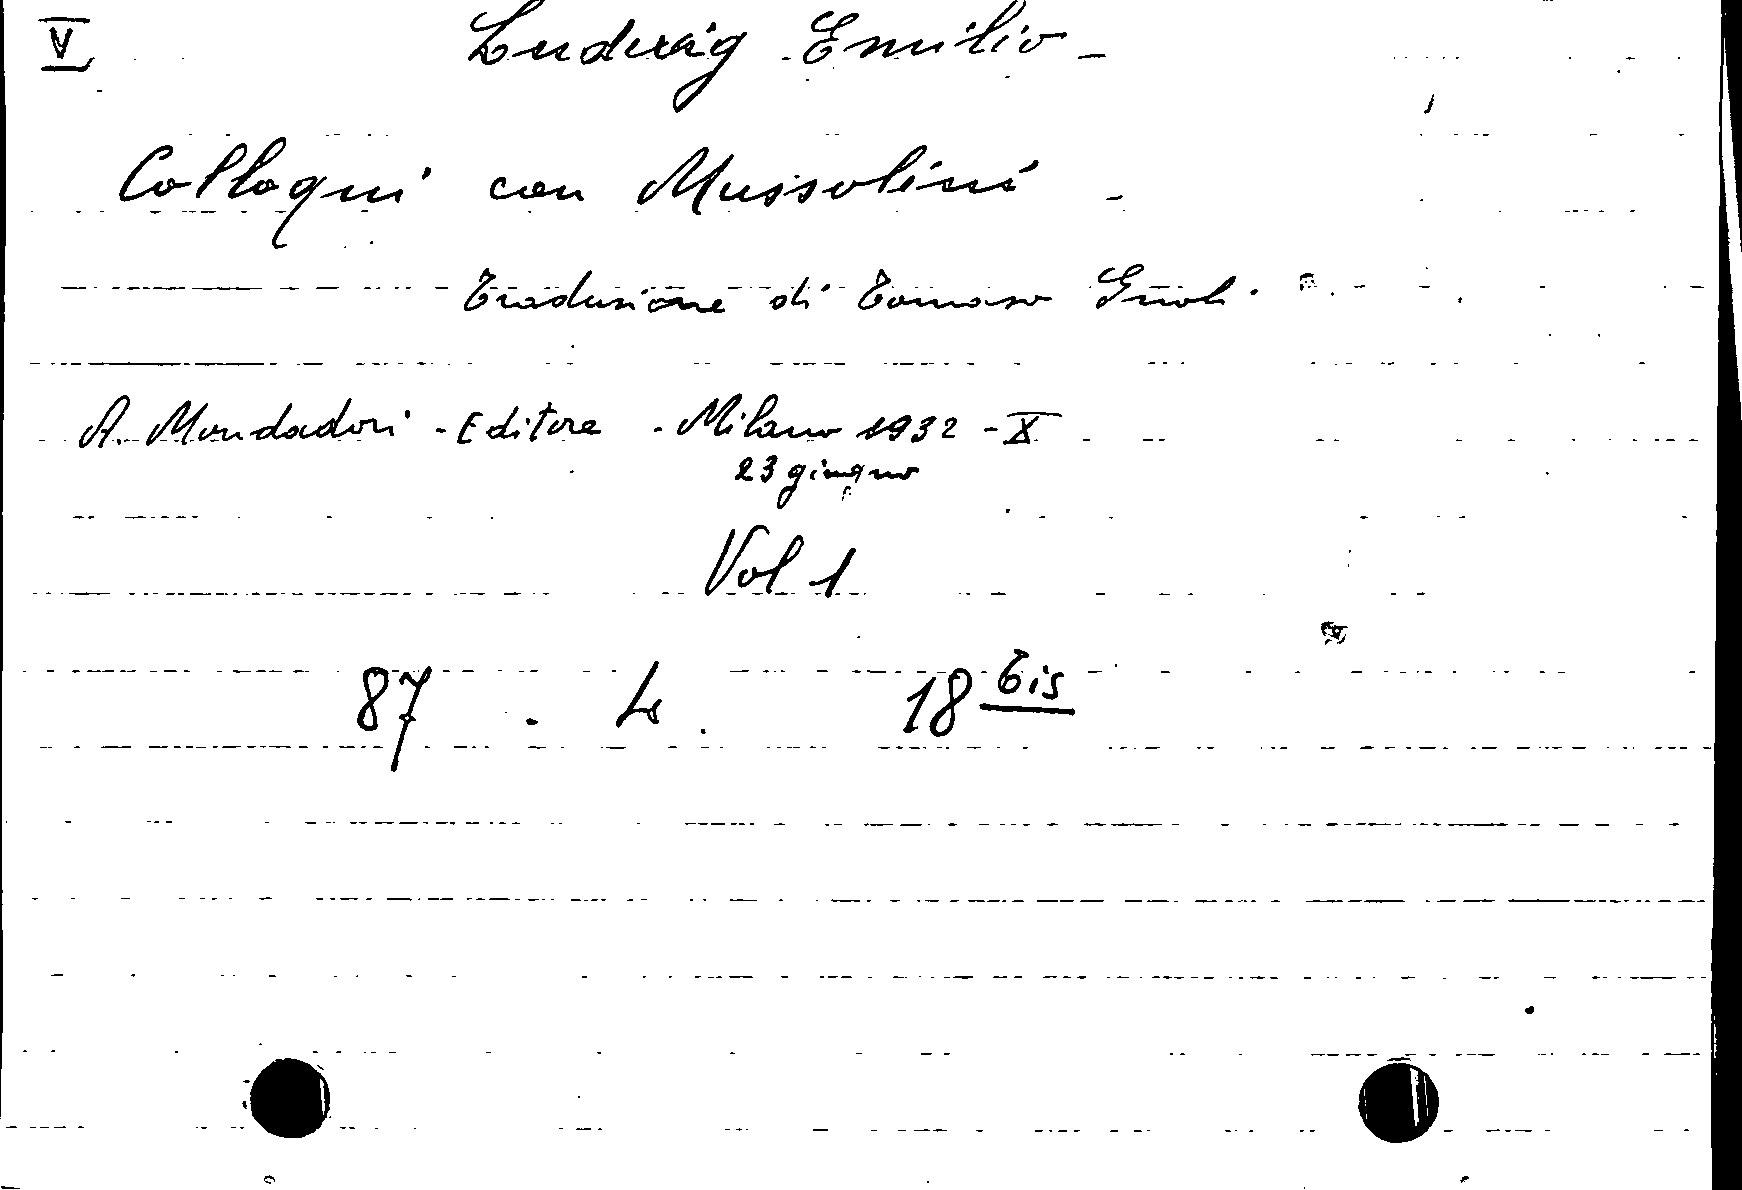 V
Ludwig Emilio -
Colloqui con Mussolini -
Traduzione di Tomaso Gnoli.
A. Mondadori - Editore - Milano 1932 - X
23 giugno
Vol 1
87 . L. 18 bis